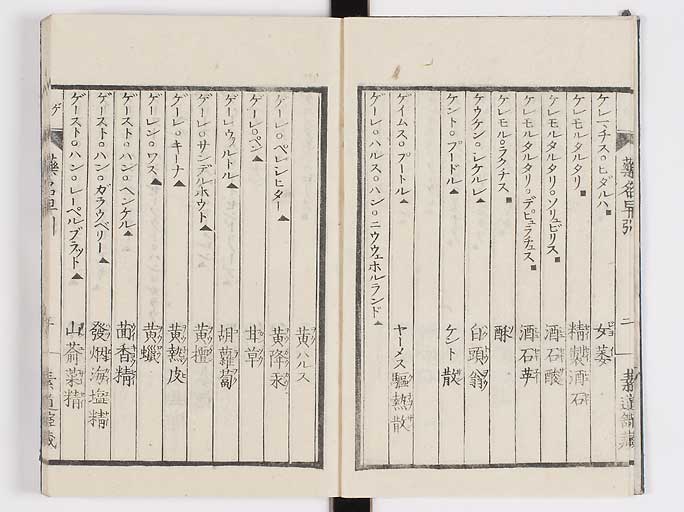 ケレマチス○ヒダルハ■ 女萎
ケレモルタルタリ■ 精製酒石
ケレモルタルタリ○ソリュビリス■ 酒石酸
ケレモルタルタリ○デピュラチュス■ 酒石英
ケレモル○ラクチス■ 酥
ケウケン○シケルレ▲ 白頭翁
ケント○プードル▲ ケント散
ゲイムス○プートル▲ ヤーメス驅熱散
ゲーレ○ハルス○ハン○ニウウェホルランド▲
黄ハルス
ゲーレ○ペレシヒター▲ 黄降汞
ゲーレ○ペン▲ 甘草
ゲーレ○ウヲルトル▲ 胡蘿蔔
ゲーレ○サンデルホウト▲ 黄檀
ゲーレ○キーナ▲ 黄熱皮
ゲーレン○ワス▲ 黄蠟
ゲースト○ハン○ヘンケル▲ 茴香精
ゲースト○ハン○ガラウベリー▲ 發烟海塩精
ゲースト○ハン○レーペルブラット▲ 山葵菜精